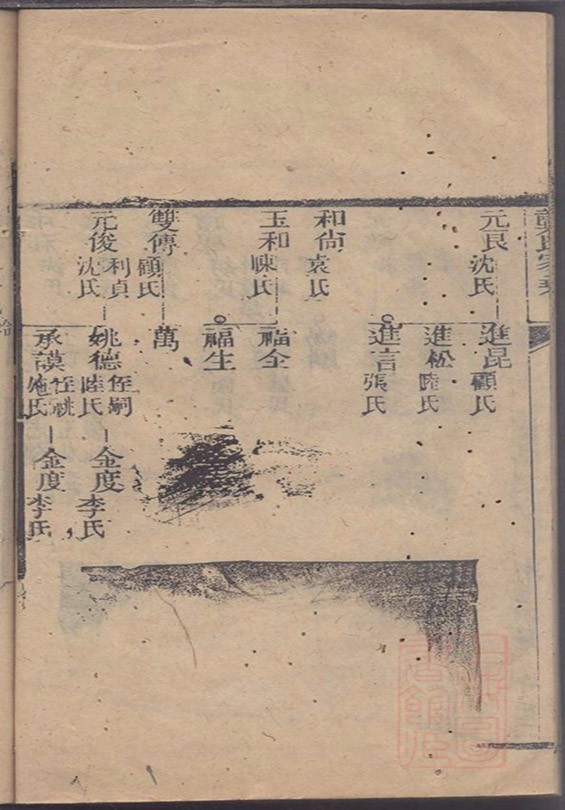 氏家
元良
沈氏
進昆
顧氏
進松
陸氏
進言
張氏
和尚
袁氏
玉和
陳氏
福全
福生
雙傳
顧氏
萬
元俊
利貞
沈氏
姚德
侄嗣
陸氏
金度
李氏
承謨
侄祧
施氏
金度
李氏